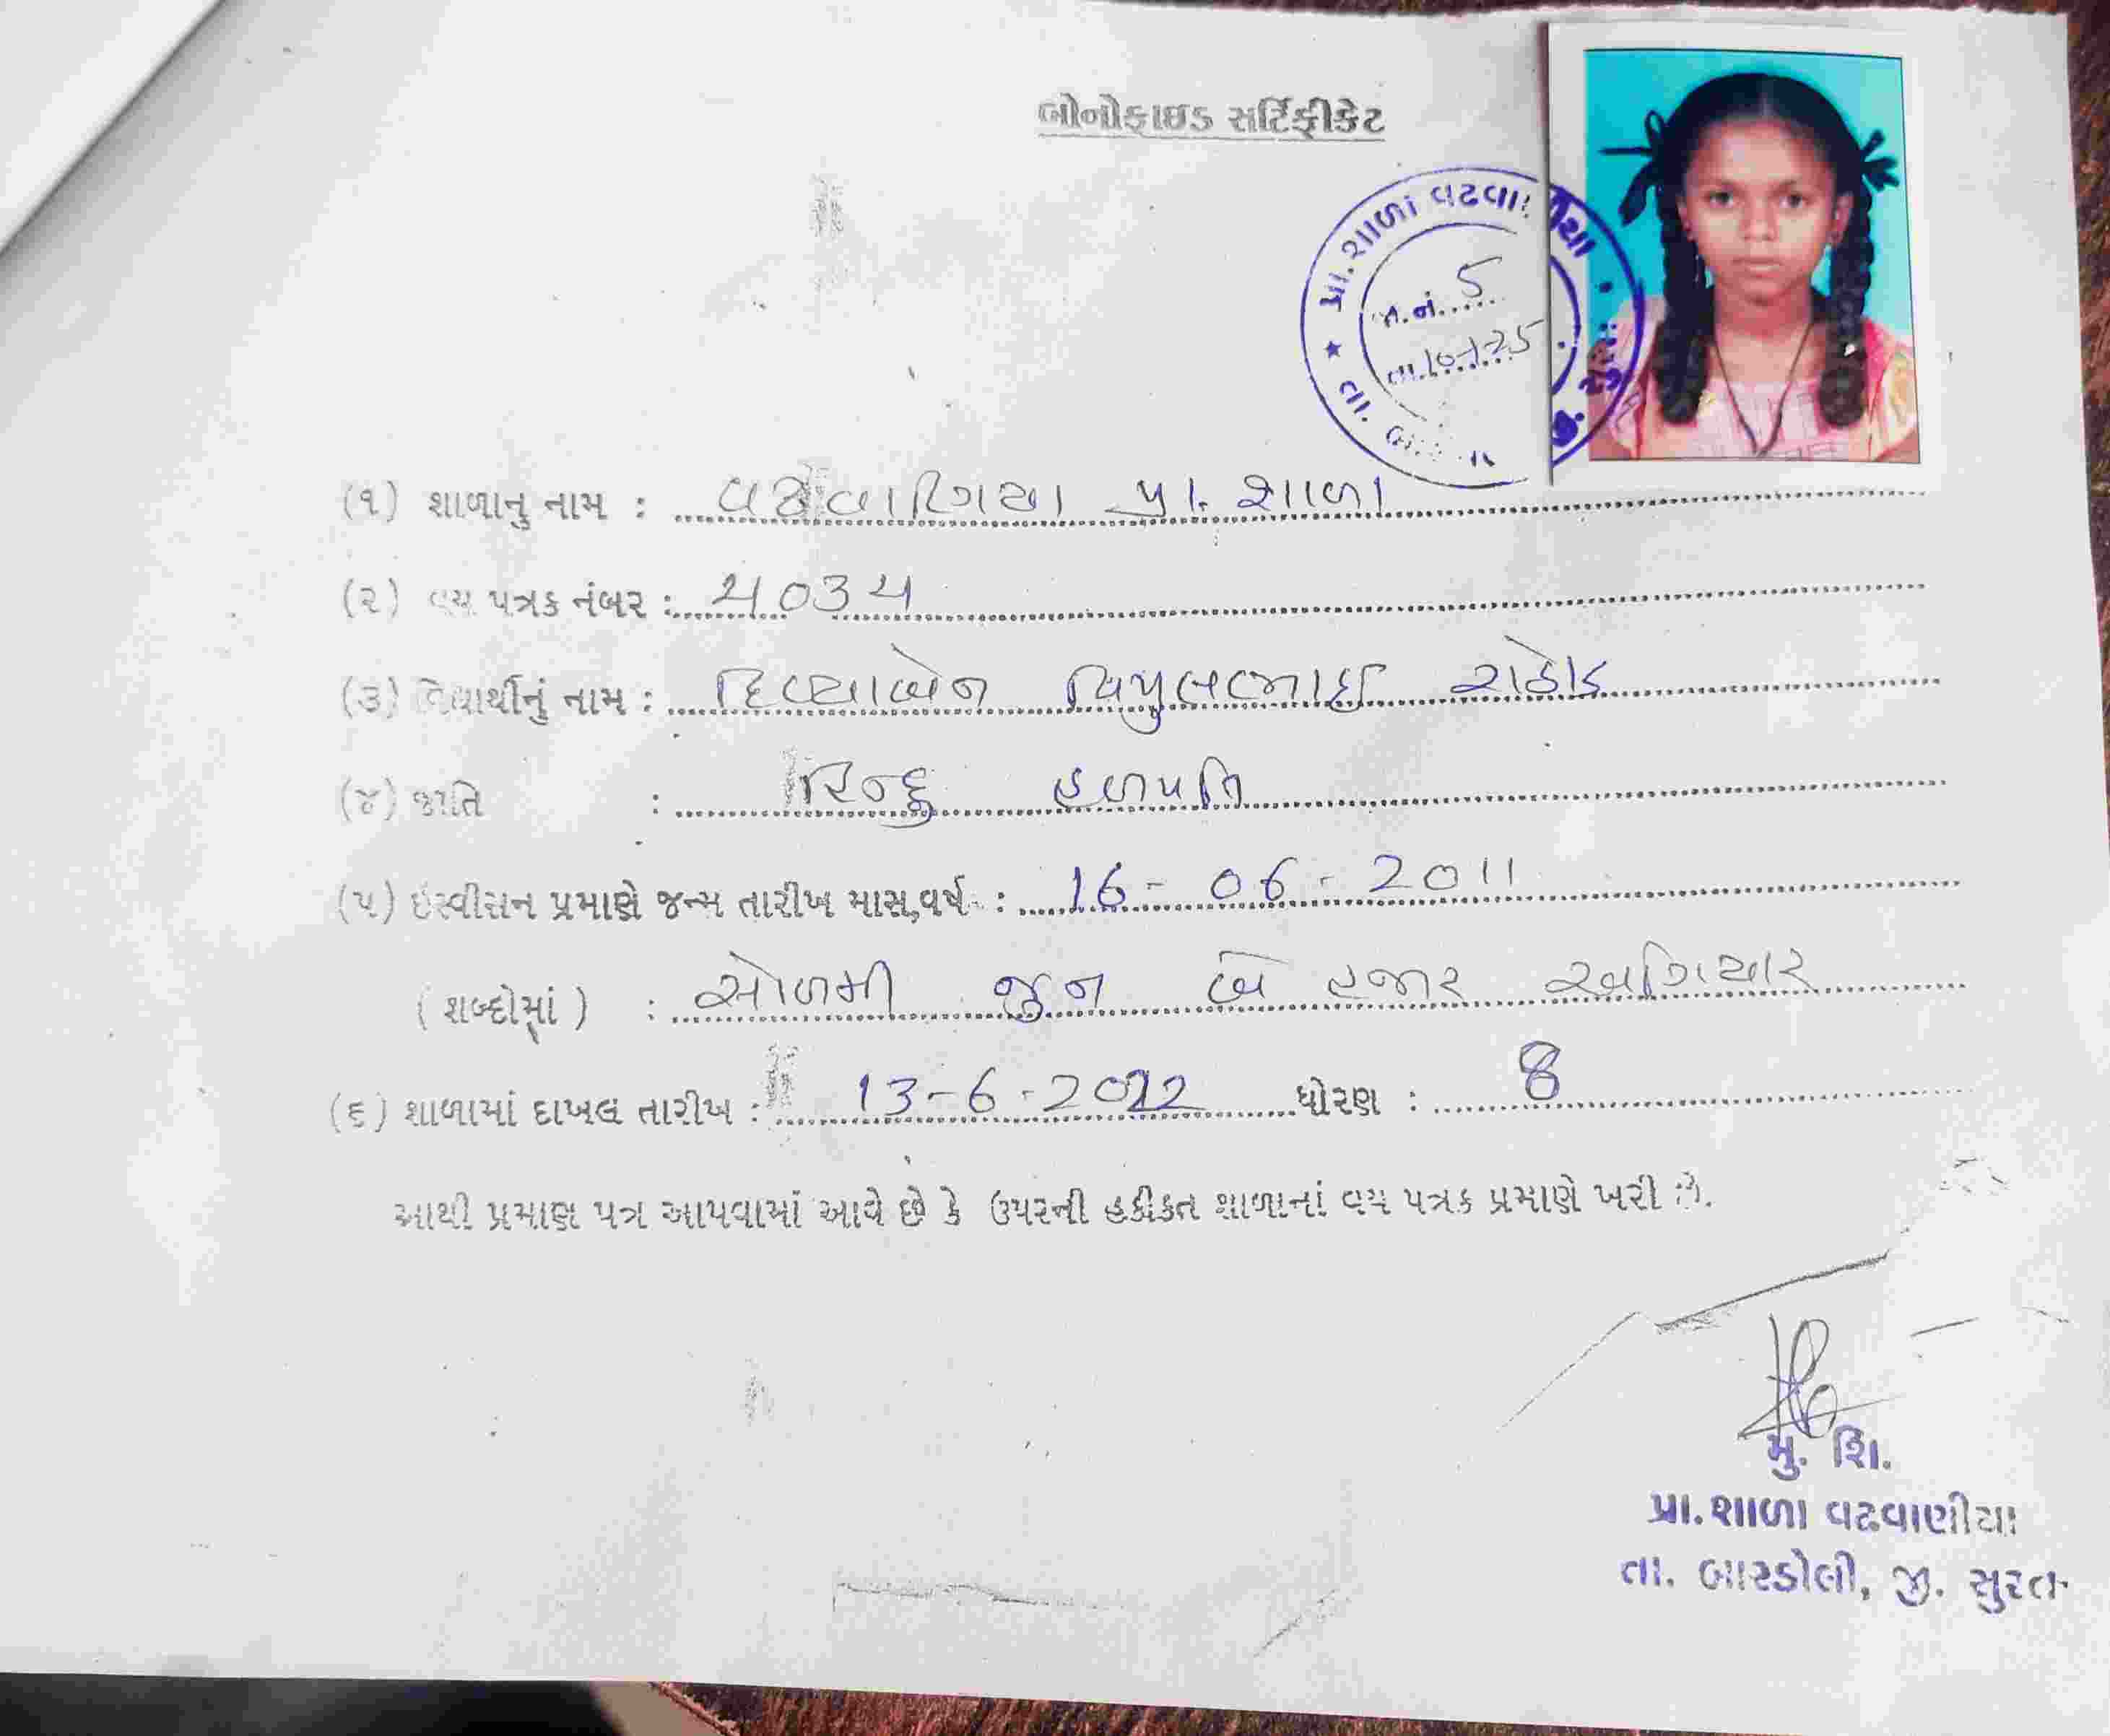 બોનોફાઇડ સર્ટિફીકેટ
પ્રા.શાળા વઢવા
જા.નં. 5
તા.
(૧) શાળાનુ નામ : વઢવાણિયા પ્રા. શાળા
(૨) વય પત્રક નંબર : ૫૦૩૫
(૩) વિદ્યાર્થીનું નામ : દિવ્યાબેન વિપુલભાઇ રાઠોડ
(૪) જાતિ : હિન્દુ હળપતિ
(૫) ઇસ્વીસન પ્રમાણે જન્મ તારીખ માસ,વર્ષ : 16-06-2011
(શબ્દોમાં) : સોળમી જુન બે હજાર અગિયાર
(૬) શાળામાં દાખલ તારીખ : 13-6-2022 ધોરણ : 8
આથી પ્રમાણ પત્ર આપવામાં આવે છે કે ઉપરની હકીકત શાળાનાં વય પત્રક પ્રમાણે ખરી છે.
મુ. શિ.
પ્રા.શાળા વઢવાણીયા
તા. બારડોલી, જી. સુરત